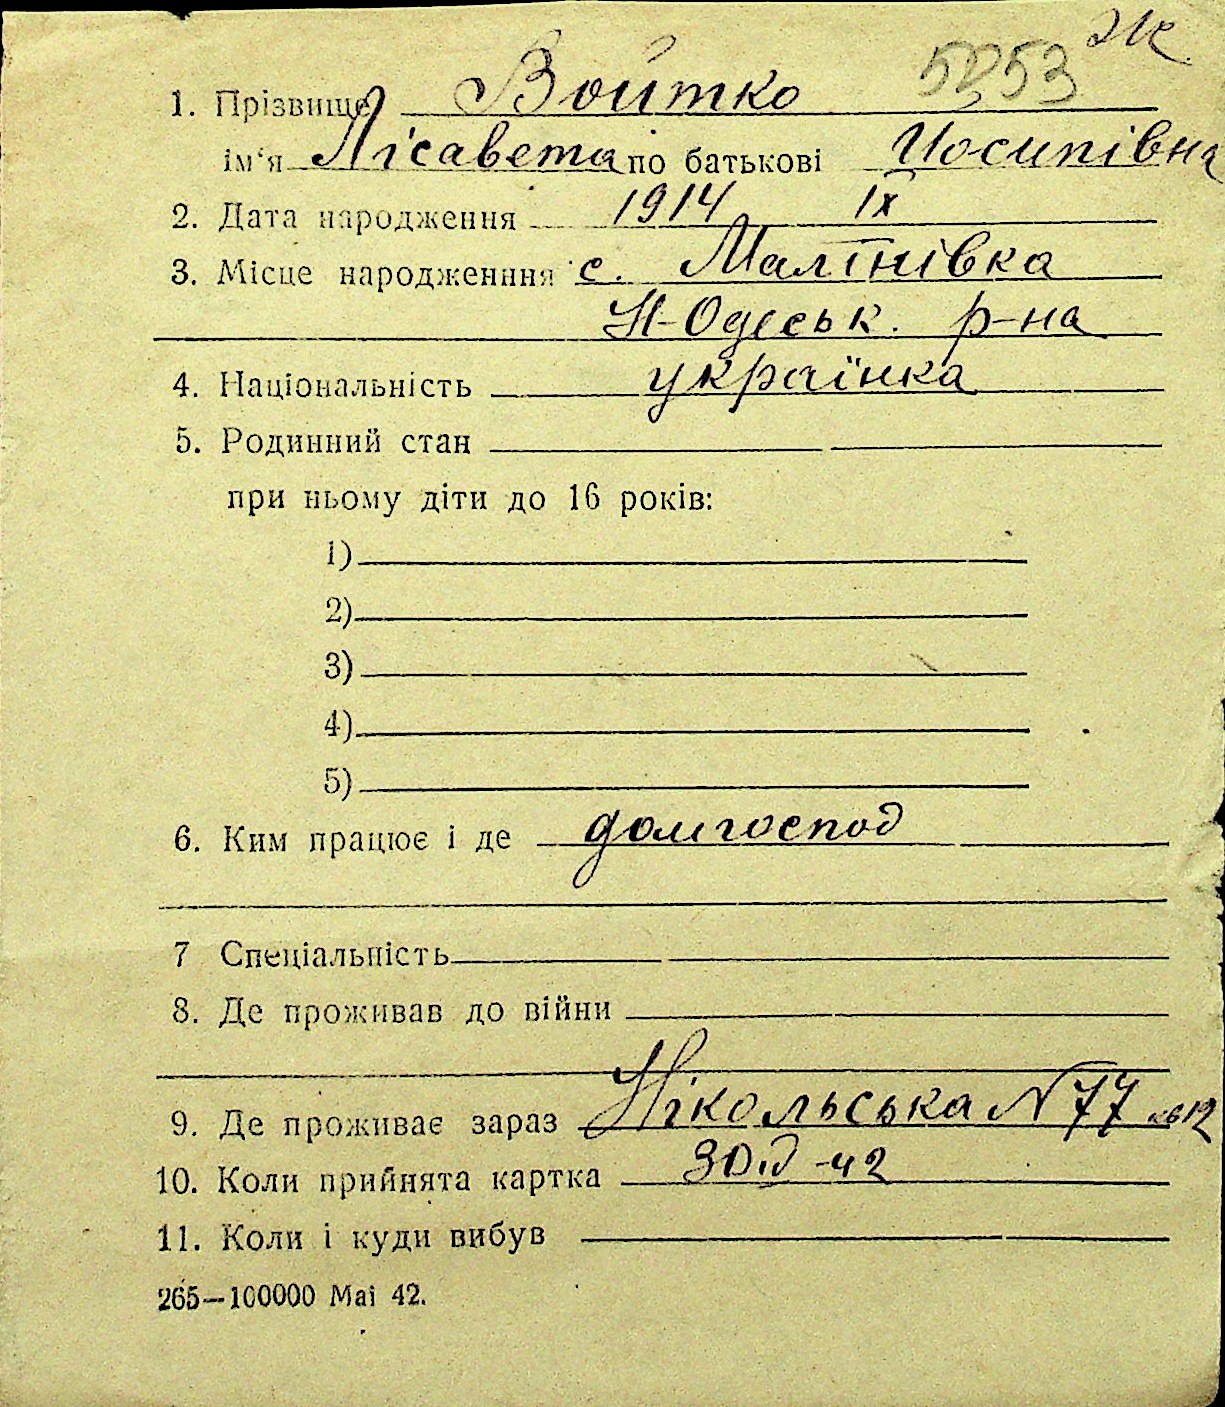 Ж
5253
1. Прізвище Войтко
ім'я Лісавета по батькові Иосипівна
2. Дата народження 1914 IX
3. Місце народженння с. Малінівка
Н-Одеськ. р-на
4. Національність українка
5. Родинний стан
при ньому діти до 16 років:
1)
2)
3)
4)
5)
6. Ким працює і де домгоспод
7 Спеціальність
8. Де проживав до війни
9. Де проживає зараз Нікольська N 77
10. Коли прийнята картка 42
11. Коли і куди вибув
265—100000 Mai 42.